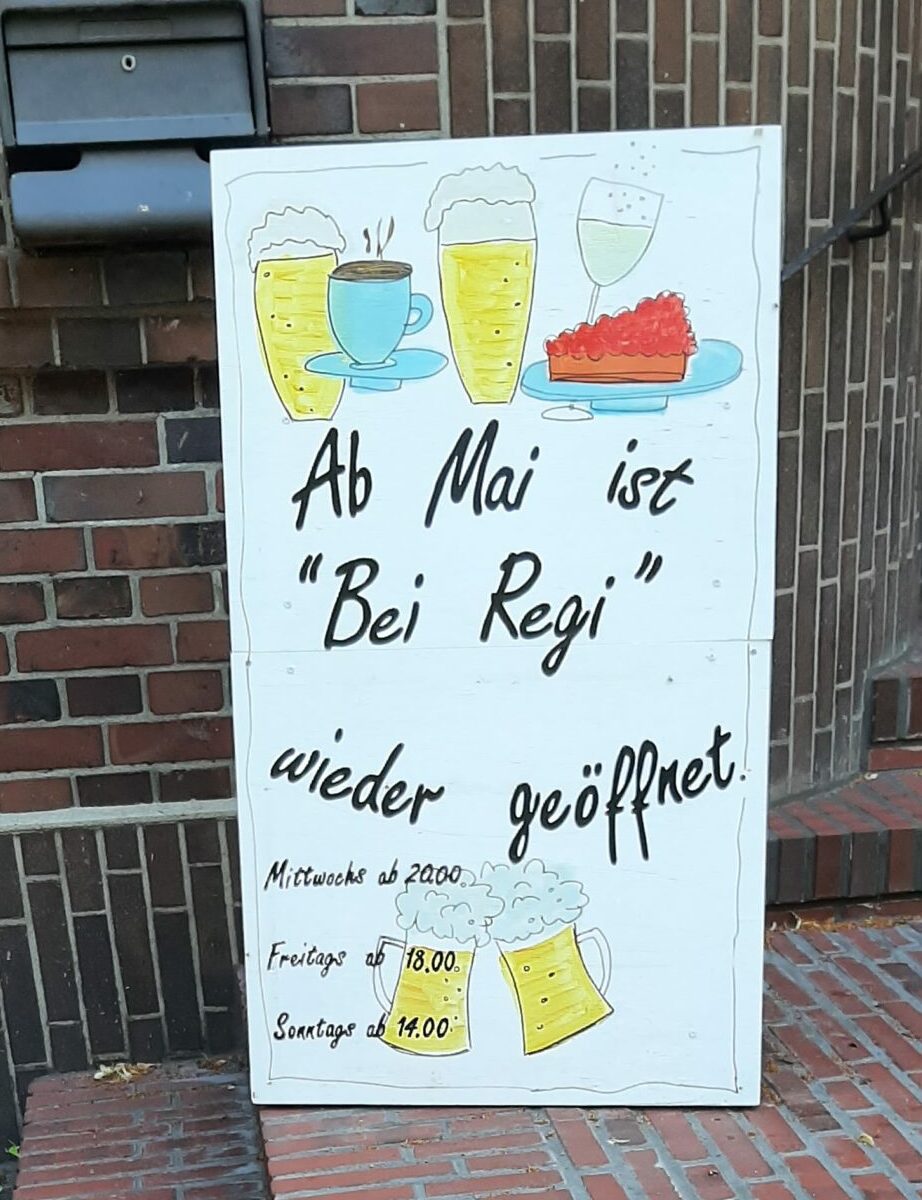 Ab Mai ist
"Bei Regi"
wieder geöffnet.
Mittwochs ab 20.00
Freitags ab 18.00
Sonntags ab 14.00